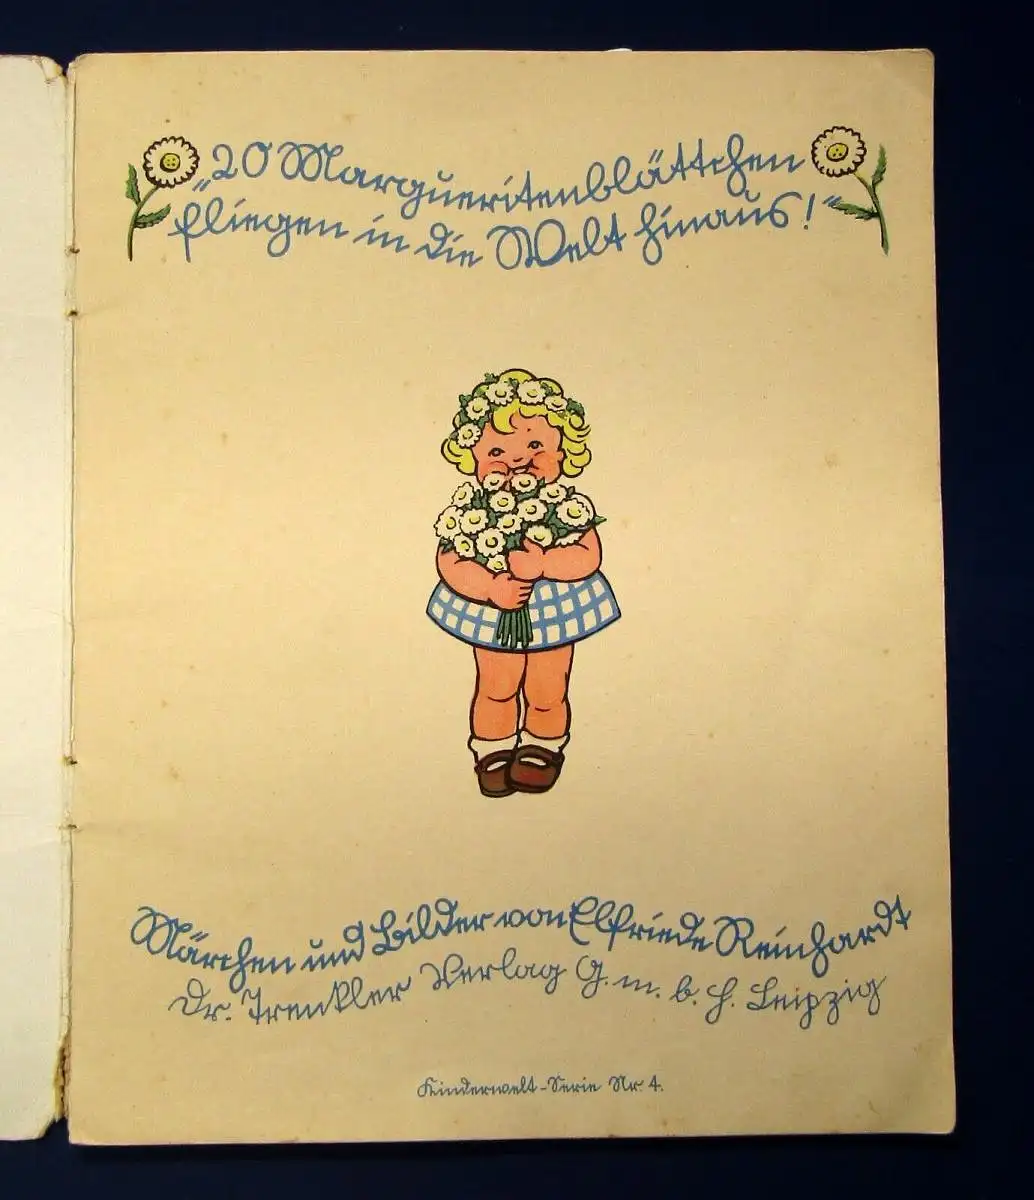 „20 Margueritenblättchen
fliegen in die Welt hinaus!“
Märchen und Bilder von Elfriede Reinhardt
Dr. Trenkler Verlag G.m.b.H. Leipzig
Kinderwelt-Serie Nr. 4.